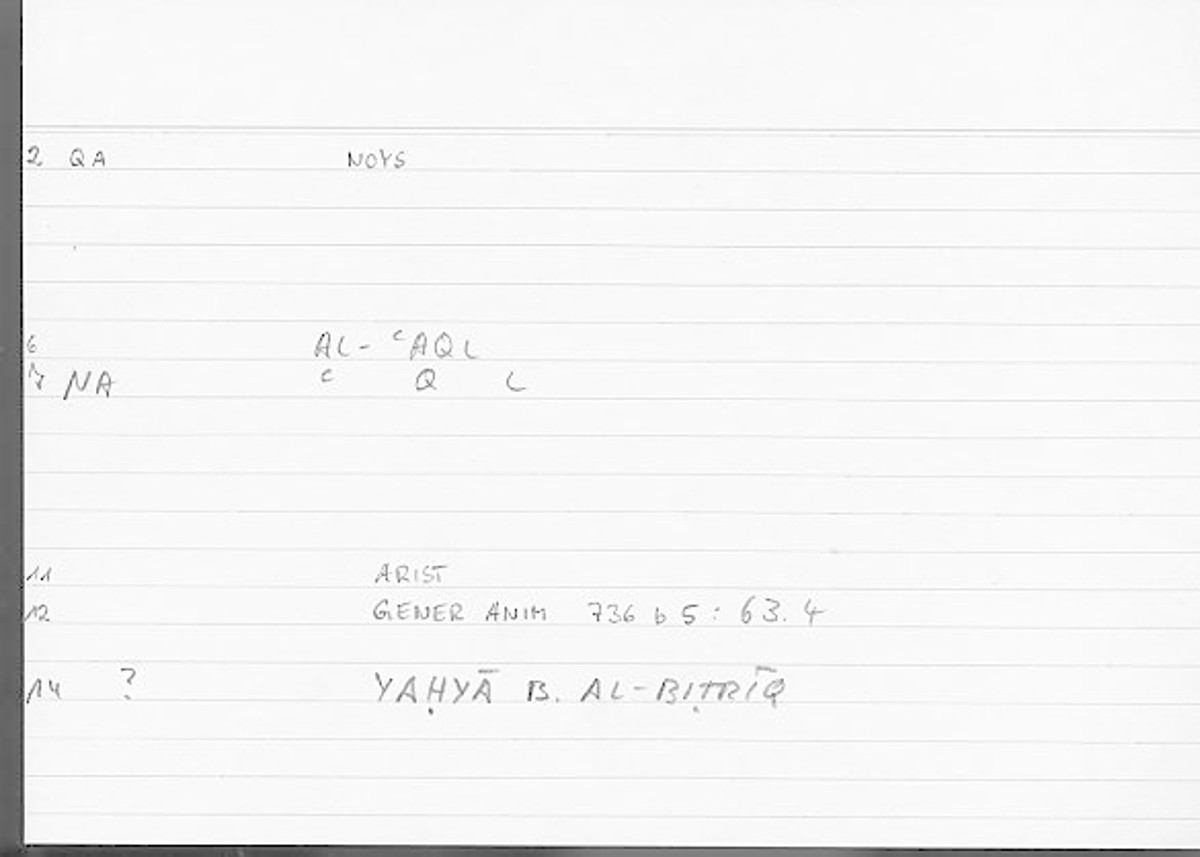 2 QA NOYS
6 AL- ᶜAQL
7 NA ᶜ Q L
11 ARIST
12 GENER ANIM 736 b 5 : 63.4
14 ? YAḤYĀ B. AL-BIṬRĪQ